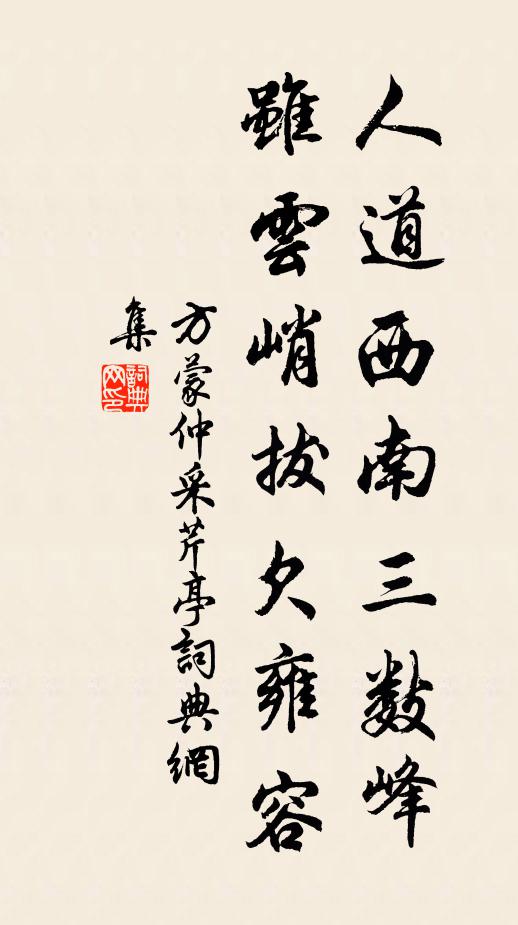 人道西南三數峰
雖雲峭拔欠雍容
方蒙仲采芹亭詞典網
集
詞典网印